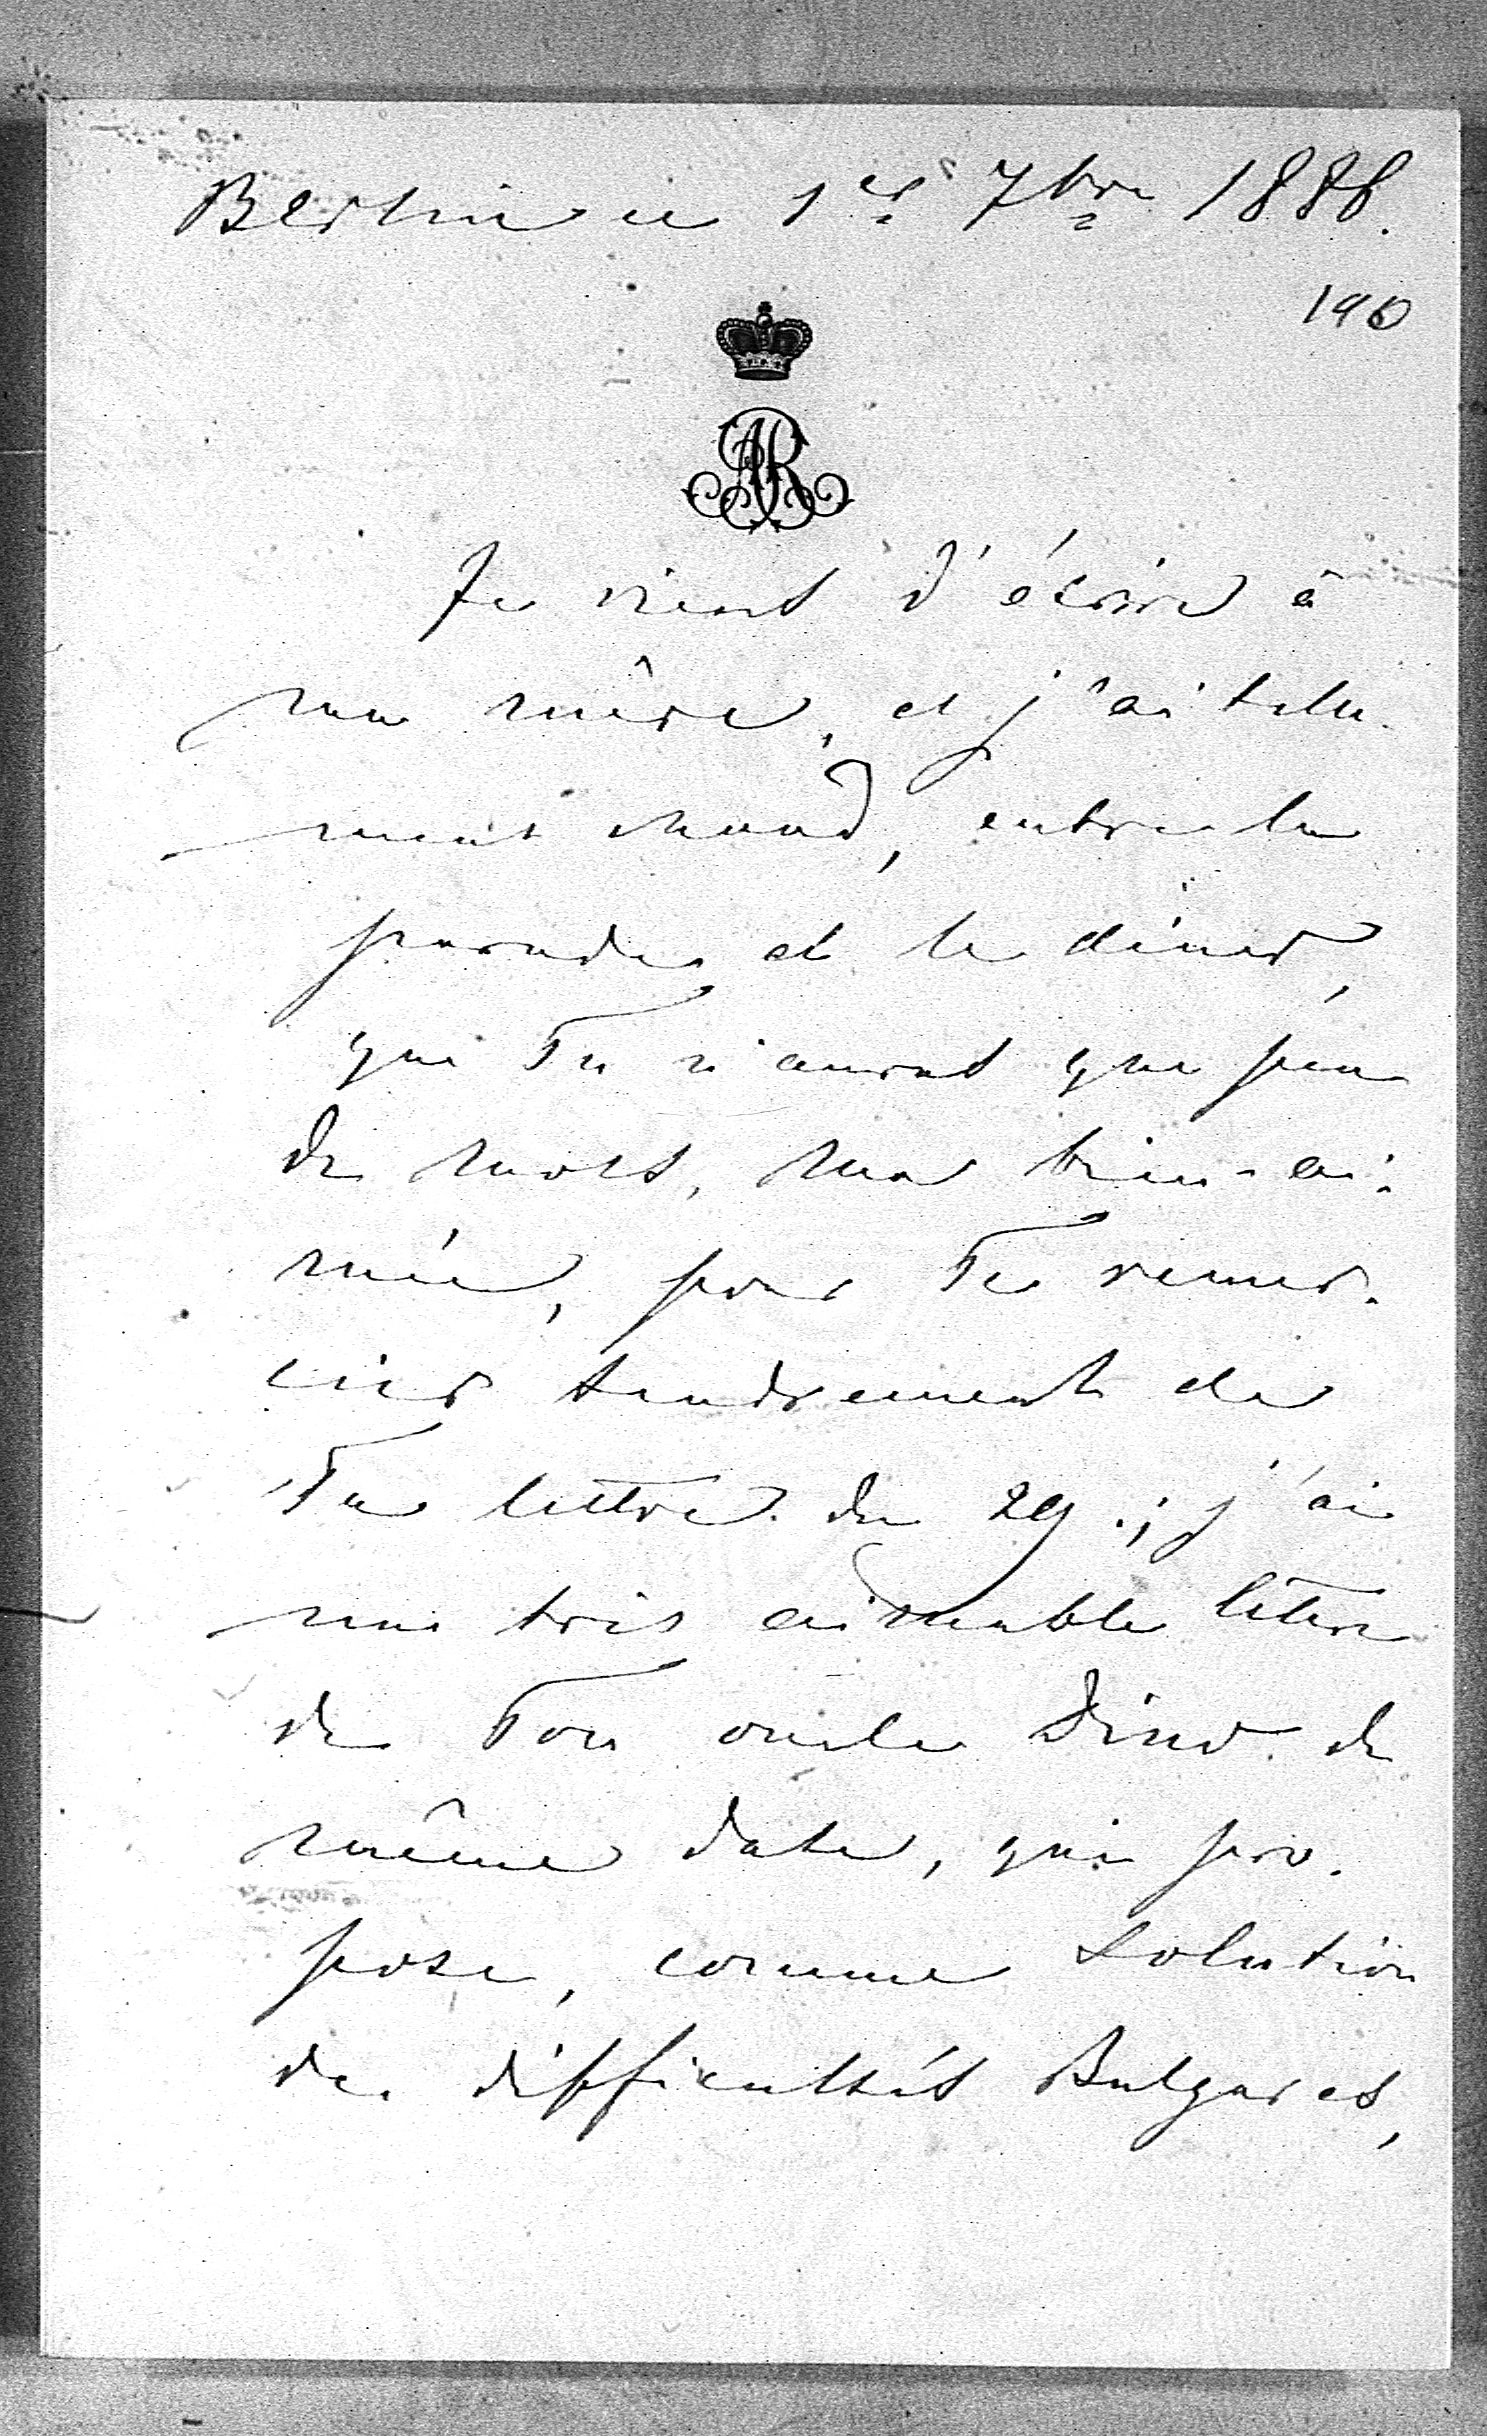 Berlin ce 1er 7bre 1886.
190
AR
Je viens d'écrire à
ma mère, et j'ai telle-
ment chaud, entre la
parade et le diner,
que Tu n'auras que peu
de mots, ma bien-ai-
mée, pour Te remer-
cier tendrement de
Ta lettre du 29.; j'ai
une très aimable lettre
de Ton oncle de
même date, qui pro-
pose, comme solution
des difficultés Bulgares,